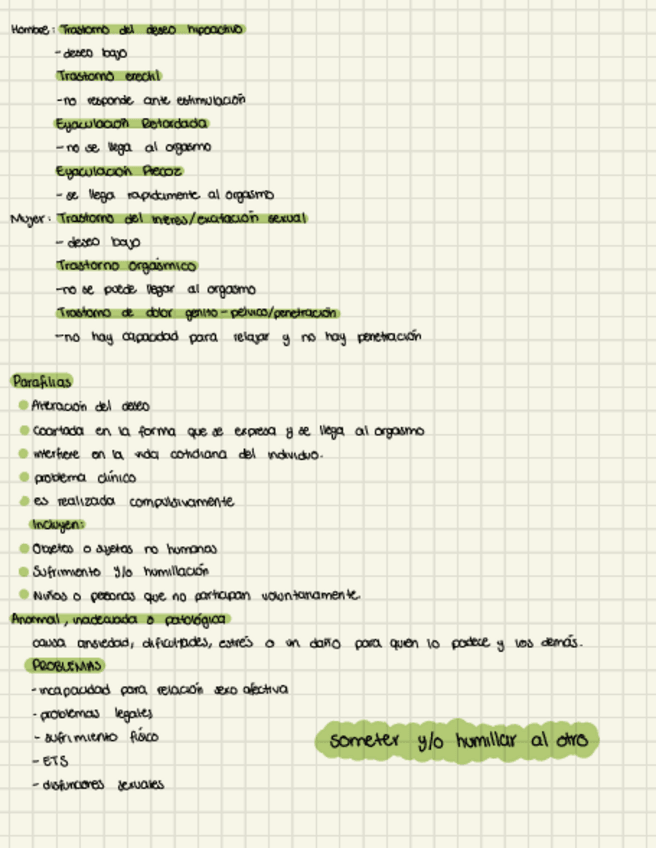 Hombre: Trastorno del deseo hipoactivo
- deseo bajo
Trastorno erectil
- no responde ante estimulación
Eyaculación Retardada
- no se llega al orgasmo
Eyaculación Precoz
- se llega rapidamente al orgasmo
Mujer: Trastorno del interes/excitación sexual
- deseo bajo
Trastorno orgásmico
- no se puede llegar al orgasmo
Trastorno de dolor genito-pelvico/penetración
- no hay capacidad para relajar y no hay penetración
Parafilias
Alteración del deseo
Coartada en la forma que se expresa y se llega al orgasmo
interfiere en la vida cotidiana del individuo.
problema clínico
es realizada compulsivamente
Incluyen:
Objetos o sujetos no humanos
Sufrimiento y/o humillación
Niños o personas que no participan voluntariamente.
Anormal, inadecuada o patológica
causa ansiedad, dificultades, estrés o un daño para quien lo padece y los demás.
PROBLEMAS
- incapacidad para relación sexo afectiva
- problemas legales
- sufrimiento físico
- ETS
- disfunciones sexuales
someter y/o humillar al otro